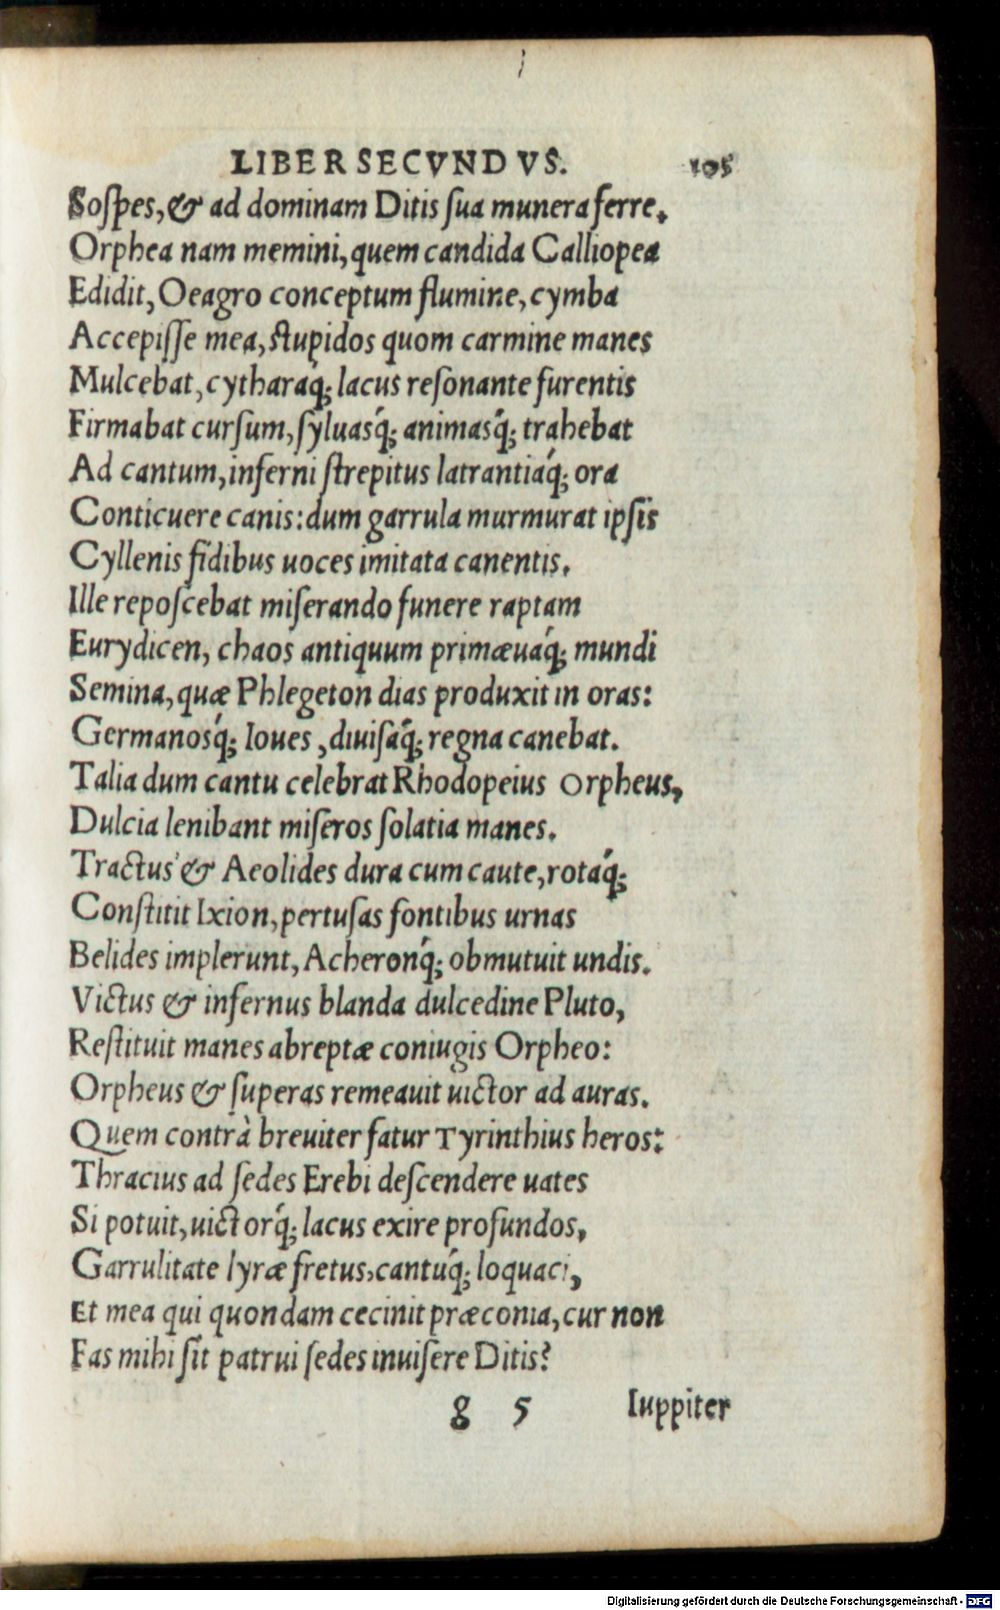 LIBER SECVNDVS. 105
Soſpes, & ad dominam Ditis ſua munera ferre.
Orphea nam memini, quem candida Calliopea
Edidit, Oeagro conceptum flumine, cymba
Accepiſſe mea, ſtupidos quom carmine manes
Mulcebat, cytharaq́; lacus reſonante furentis
Firmabat curſum, ſyluasq́; animasq́; trahebat
Ad cantum, inferni ſtrepitus latrantiaq́; ora
Conticuere canis: dum garrula murmurat ipſis
Cyllenis fidibus uoces imitata canentis.
Ille repoſcebat miſerando funere raptam
Eurydicen, chaos antiquum primæuaq́; mundi
Semina, quæ Phlegeton dias produxit in oras:
Germanosq́; Ioues, diuiſaq́; regna canebat.
Talia dum cantu celebrat Rhodopeius Orpheus,
Dulcia lenibant miſeros ſolatia manes.
Tractus & Aeolides dura cum caute, rotaq́;
Conſtitit Ixion, pertuſas fontibus urnas
Belides implerunt, Acheronq́; obmutuit undis.
Victus & infernus blanda dulcedine Pluto,
Reſtituit manes abreptæ coniugis Orpheo:
Orpheus & ſuperas remeauit uictor ad auras.
Quem contrà breuiter fatur Tyrinthius heros:
Thracius ad ſedes Erebi deſcendere uates
Si potuit, uictorq́; lacus exire profundos,
Garrulitate lyræ fretus, cantuq́; loquaci,
Et mea qui quondam cecinit præconia, cur non
Fas mihi ſit patrui ſedes inuiſere Ditis?
g 5 Iuppiter
Digitalisierung gefördert durch die Deutsche Forschungsgemeinschaft - DFG